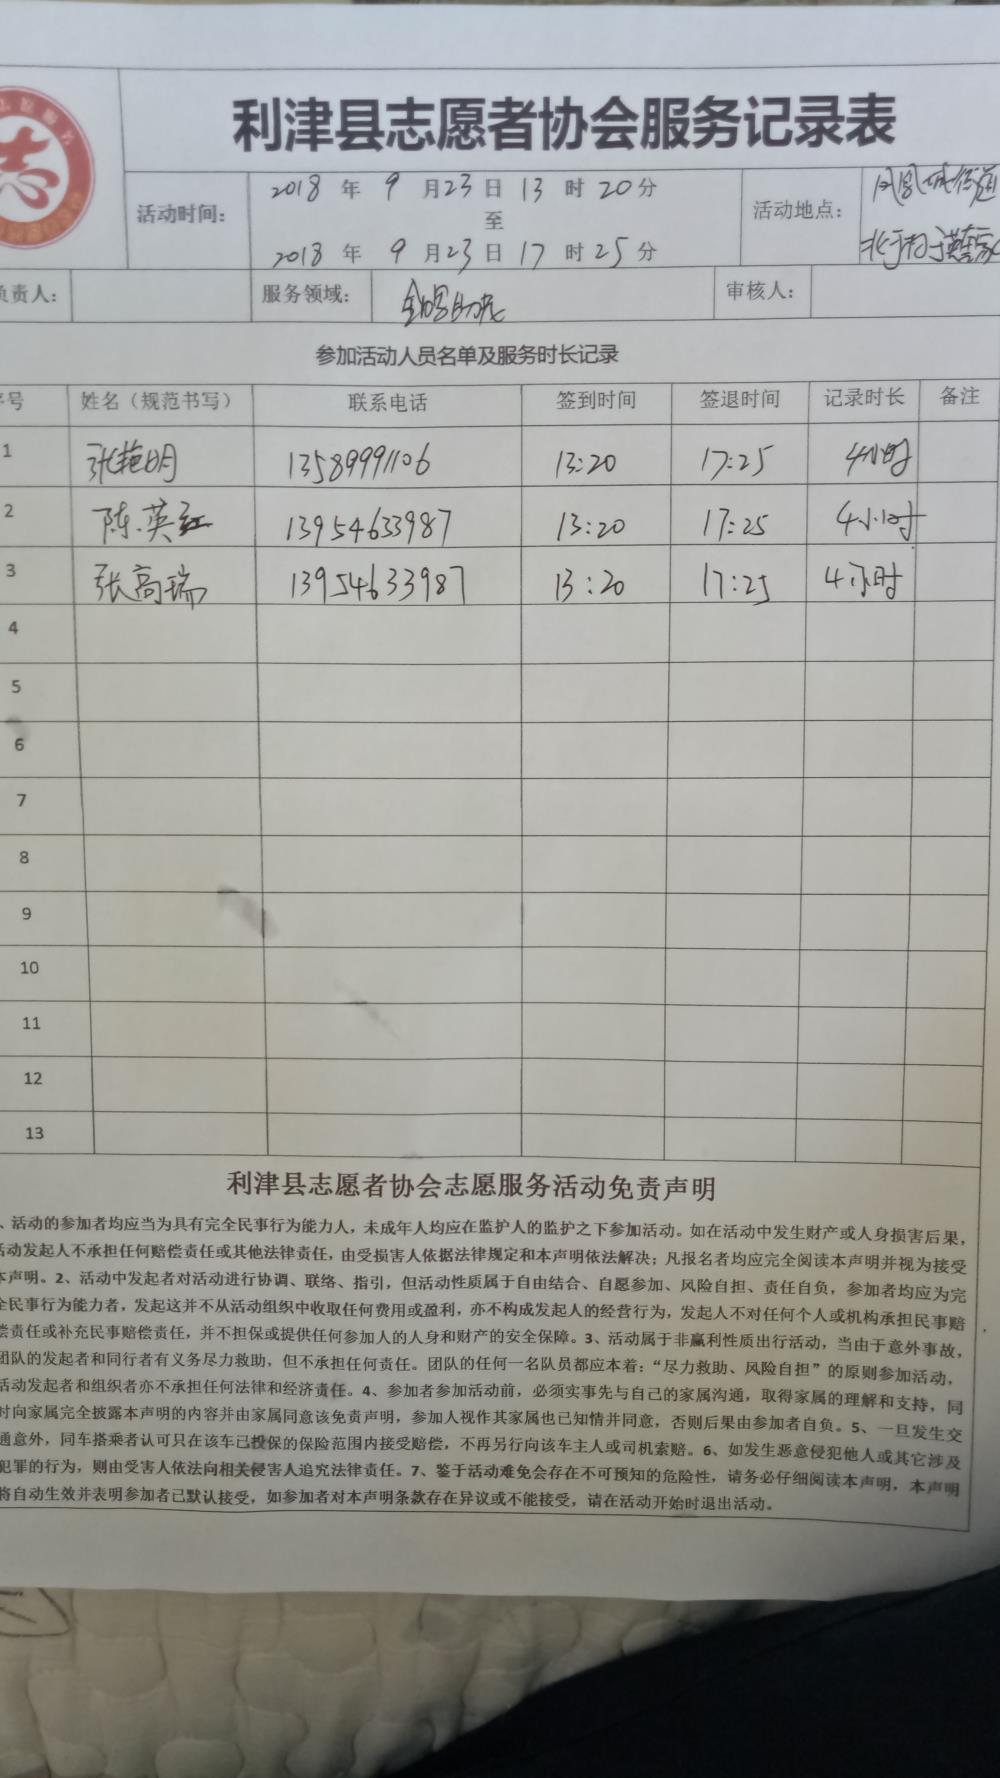 志
利津县志愿者协会服务记录表
活动时间：
2018 年 9 月 23 日 13 时 20 分
至
2018 年 9 月 23 日 17 时 25 分
活动地点：
凤凰城街道
北于村于
负责人：
服务领域：
审核人：
参加活动人员名单及服务时长记录
序号 姓名（规范书写） 联系电话 签到时间 签退时间 记录时长 备注
1 张艳明 13589991106 13:20 17:25 4小时
2 陈英红 13954633987 13:20 17:25 4小时
3 张高瑞 13954633987 13:20 17:25 4小时
4
5
6
7
8
9
10
11
12
13
利津县志愿者协会志愿服务活动免责声明
、活动的参加者均应当为具有完全民事行为能力人，未成年人均应在监护人的监护之下参加活动。如在活动中发生财产或人身损害后果，
活动发起人不承担任何赔偿责任或其他法律责任，由受损害人依据法律规定和本声明依法解决；凡报名者均应完全阅读本声明并视为接受
本声明。2、活动中发起者对活动进行协调、联络、指引，但活动性质属于自由结合、自愿参加、风险自担、责任自负，参加者均应为完
全民事行为能力者，发起这并不从活动组织中收取任何费用或盈利，亦不构成发起人的经营行为，发起人不对任何个人或机构承担民事赔
偿责任或补充民事赔偿责任，并不担保或提供任何参加人的人身和财产的安全保障。3、活动属于非赢利性质出行活动，当由于意外事故，
团队的发起者和同行者有义务尽力救助，但不承担任何责任。团队的任何一名队员都应本着：“尽力救助、风险自担”的原则参加活动，
活动发起者和组织者亦不承担任何法律和经济责任。4、参加者参加活动前，必须实事先与自己的家属沟通，取得家属的理解和支持，同
时向家属完全披露本声明的内容并由家属同意该免责声明，参加人视作其家属也已知情并同意，否则后果由参加者自负。5、一旦发生交
通意外，同车搭乘者认可只在该车已投保的保险范围内接受赔偿，不再另行向该车主人或司机索赔。6、如发生恶意侵犯他人或其它涉及
犯罪的行为，则由受害人依法向相关侵害人追究法律责任。7、鉴于活动难免会存在不可预知的危险性，请务必仔细阅读本声明，本声明
将自动生效并表明参加者已默认接受，如参加者对本声明条款存在异议或不能接受，请在活动开始时退出活动。